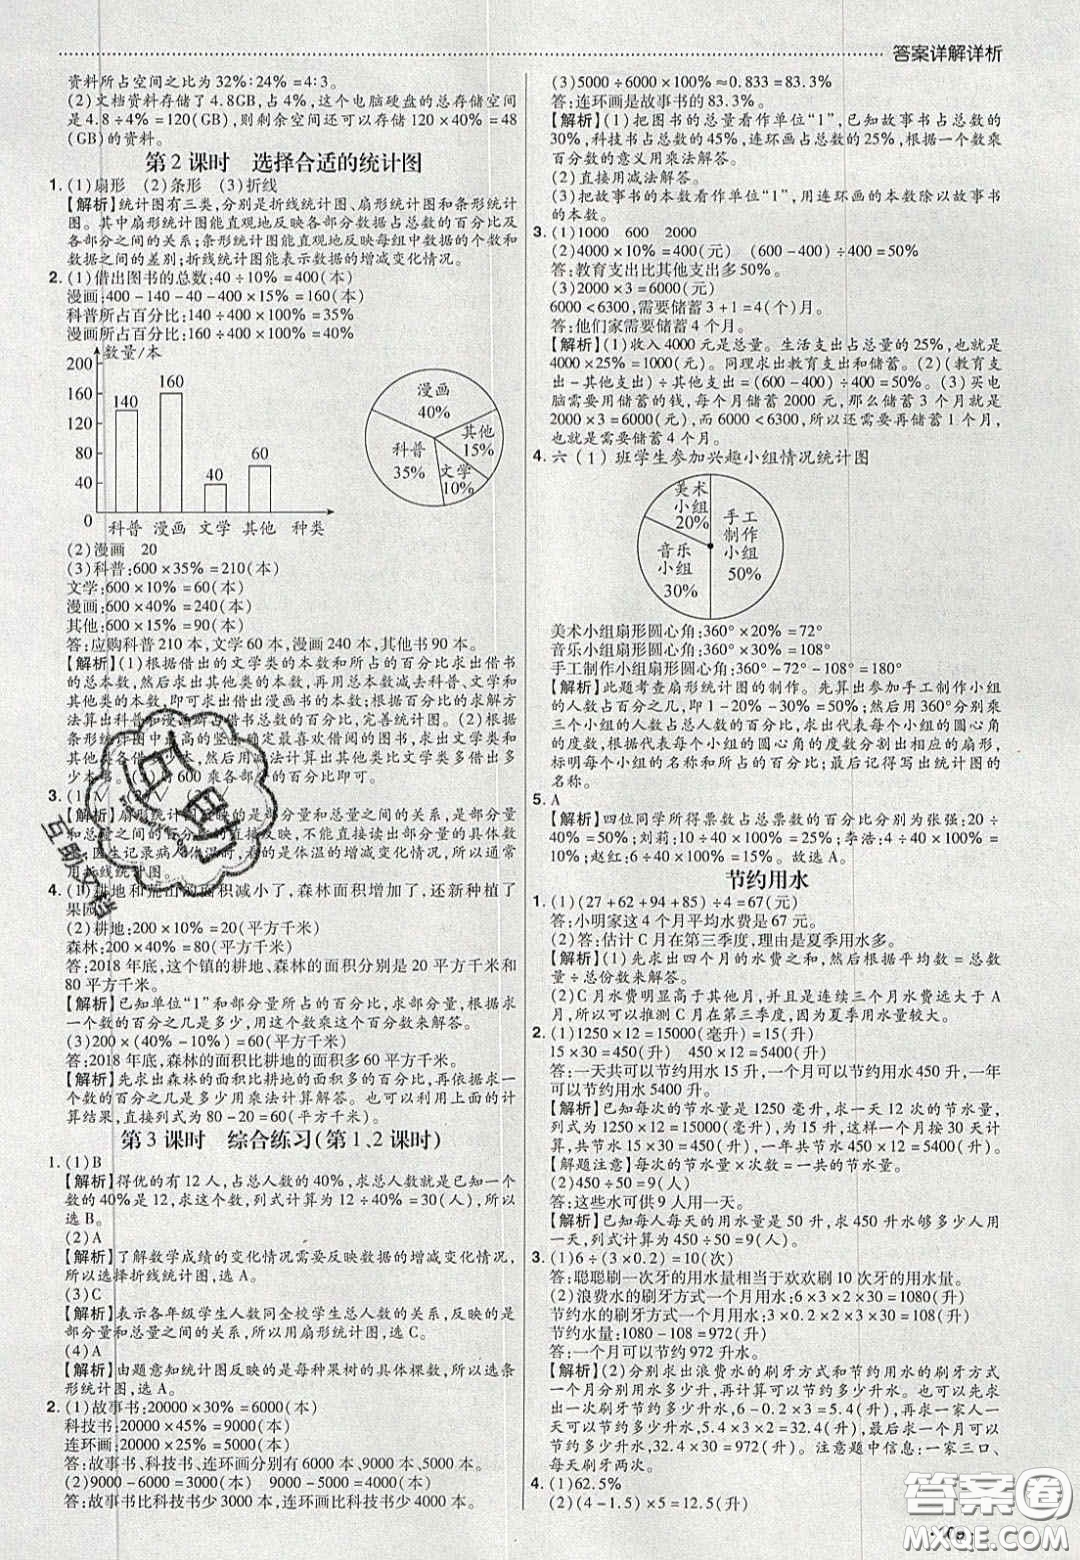 答案详解详析
资料所占空间之比为32%:24%=4:3。
(2)文档资料存储了4.8GB,占4%,这个电脑硬盘的总存储空间
是4.8÷4%=120(GB),则剩余空间还可以存储120×40%=48
(GB)的资料。
第2课时 选择合适的统计图
1. (1)扇形 (2)条形 (3)折线
【解析】统计图有三类,分别是折线统计图、扇形统计图和条形统计
图。其中扇形统计图能直观地反映各部分数据占总数的百分比及
各部分之间的关系;条形统计图能直观地反映每组中数据的个数和
数据之间的差别;折线统计图能表示数据的增减变化情况。
2. (1)借出图书的总数:40÷10%=400(本)
漫画:400-140-40-400×15%=160(本)
科普所占百分比:140÷400×100%=35%
漫画所占百分比:160÷400×100%=40%
数量/本
200
160
120
80
40
0
140
160
40
60
科普 漫画 文学 其他 种类
漫画
40%
其他
15%
科普
35%
文学
10%
(2)漫画 20
(3)科普:600×35%=210(本)
文学:600×10%=60(本)
漫画:600×40%=240(本)
其他:600×15%=90(本)
答:应购科普210本,文学60本,漫画240本,其他书90本。
【解析】(1)根据借出的文学类的本数和所占的百分比求出借书
的总本数,然后求出其他类的本数,再用总本数减去科普、文学和
其他类的本数,即可求出借出漫画的本数,根据百分比的求解方
法算出科普和漫画所占借书总数的百分比,完善统计图。(2)根据
条形统计图中最高的竖条确定最喜欢借阅的图书,求出文学类和
其他类占总数的百分比,再用减法计算出其他类比文学类多借出多
少本书。(3)600乘各部分的百分比即可。
3.
【解析】扇形统计图反映的是部分量和总量之间的关系,是部分量
和总量之间的百分比的直接反映,不能直接读出部分量的具体数
。医生记录病人体温时,看的是体温的增减变化情况,所以通常
用折线统计图。
4. (1)耕地和荒山的面积减小了,森林面积增加了,还新种植了
果园。
(2)耕地:200×10%=20(平方千米)
森林:200×40%=80(平方千米)
答:2018年底,这个镇的耕地、森林的面积分别是20平方千米和
80平方千米。
【解析】已知单位“1”和部分量所占的百分比,求部分量,根据求
一个数的百分之几是多少,用这个数乘这个百分比来解答。
(3)200×(40%-10%)=60(平方千米)
答:2018年底,森林的面积比耕地的面积多60平方千米。
【解析】先求出森林的面积比耕地的面积多百分之几,再依据求一
个数的百分之几是多少用乘法计算解答。也可以利用(2)题的计
算结果,直接列式为80-20=60(平方千米)。
第3课时 综合练习(第1、2课时)
1. (1)B
【解析】得优的有12人,占总人数的40%,求总人数就是已知一个
数的40%是12,求这个数,列式计算为12÷40%=30(人),所以
选B。
(2)A
【解析】了解数学成绩的变化情况需要反映数据的增减变化情况,
所以选择折线统计图,选A。
(3)C
【解析】表示各年级学生人数同全校学生总人数的关系,反映的是
部分量和总量之间的关系,所以用扇形统计图,选C。
(4)A
【解析】由题意知统计图反映的是每种果树的具体棵数,所以选条
形统计图,选A。
2. (1)故事书:20000×30%=6000(本)
科技书:20000×45%=9000(本)
连环画:20000×25%=5000(本)
答:故事书、科技书、连环画分别有6000本、9000本、5000本。
(2)9000-6000=3000(本) 9000-5000=4000(本)
答:故事书比科技书少3000本,连环画比科技书少4000本。
(3)5000÷6000×100%≈0.833=83.3%
答:连环画是故事书的83.3%。
【解析】(1)把图书的总量看作单位“1”,已知故事书占总数的
30%,科技书占总数的45%,连环画占总数的25%,根据一个数乘
百分数的意义用乘法解答。
(2)直接用减法解答。
(3)把故事书的本数看作单位“1”,用连环画的本数除以故事书
的本数。
3. (1)1000 600 2000
(2)4000×10%=400(元) (600-400)÷400=50%
答:教育支出比其他支出多50%。
(3)2000×3=6000(元)
6000<6300,需要储蓄3+1=4(个)月。
答:他们家需要储蓄4个月。
【解析】(1)收入4000元是总量。生活支出占总量的25%,也就是
4000×25%=1000(元)。同理求出教育支出和储蓄。(2)(教育
支出-其他支出)÷其他支出=(600-400)÷400=50%。(3)买电
脑需要用储蓄的钱,每个月储蓄2000元,那么储蓄3个月就是
2000×3=6000(元),而6000<6300,所以还需要再储蓄1个月,
也就是需要储蓄4个月。
4. 六(1)班学生参加兴趣小组情况统计图
美术
小组
20%
手工
制作
小组
50%
音乐
小组
30%
美术小组扇形圆心角:360°×20%=72°
音乐小组扇形圆心角:360°×30%=108°
手工制作小组扇形圆心角:360°-72°-108°=180°
【解析】此题考查扇形统计图的制作。先算出参加手工制作小组
的人数占百分之几,即1-20%-30%=50%,然后用360°分别乘
三个小组的人数占总人数的百分比,求出代表每个小组的圆心角
的度数,根据代表每个小组的圆心角的度数分割出相应的扇形,
标明每个小组的名称和所占的百分比;最后记得写出统计图
的名称。
5. A
【解析】四位同学所得票数占总票数的百分比分别为张强:20÷
40=50%;刘莉:10÷40×100%=25%;李浩:4÷40×100%=
10%;赵红:6÷40×100%=15%。故选A。
节约用水
1. (1)(27+62+94+85)÷4=67(元)
答:小明家这4个月平均水费是67元。
(2)答:估计C月在第三季度,理由是夏季用水多。
【解析】(1)先求出四个月的水费之和,然后根据平均数=总数
量÷总份数来解答。
(2)C月水费明显高于其他月,并且是连续三个月水费远大于A
月,所以可以推测C月在第三季度,因为夏季用水量较大。
2. (1)1250×12=15000(毫升)=15(升)
15×30=450(升) 450×12=5400(升)
答:一天共可以节约用水15升,一个月可以节约用水450升,一年
可以节约用水5400升。
【解析】已知每次的节水量是1250毫升,求一天12次的节水量,
列式为1250×12=15000(毫升),为15升,这样一个月按30天计
算,共节水15×30=450(升),一年共节水450×12=5400(升)。
【解题注意】每次的节水量×次数=一共的节水量。
(2)450÷50=9(人)
答:这些水可供9人用一天。
【解析】已知每人每天的用水量是50升,求450升水够多少人用一
天,列式计算为450÷50=9(人)。
3. (1)6÷(3×0.2)=10(次)
答:聪聪刷一次牙的用水量相当于欢欢刷10次牙的用水量。
(2)浪费水的刷牙方式一个月用水:6×3×2×30=1080(升)
节约水的刷牙方式一个月用水:3×0.2×3×2×30=108(升)
节约水量:1080-108=972(升)
答:一个月可以节约972升水。
【解析】(2)分别求出浪费水的刷牙方式和节约用水的刷牙方式
一个月分别用水多少升,再算出节约多少升水。也可以先求出
一次刷牙节约多少升水,6-0.2×3=5.4(升),再求一家人一
天可以节约多少升水,5.4×3×2=32.4(升),最后求一个月可以
节约多少升水,32.4×30=972(升)。注意题中信息:一家三口、
每天刷牙两次。
4. (1)62.5%
(2)(4-1.5)×5=12.5(升)
互助
互助文档
答案圈